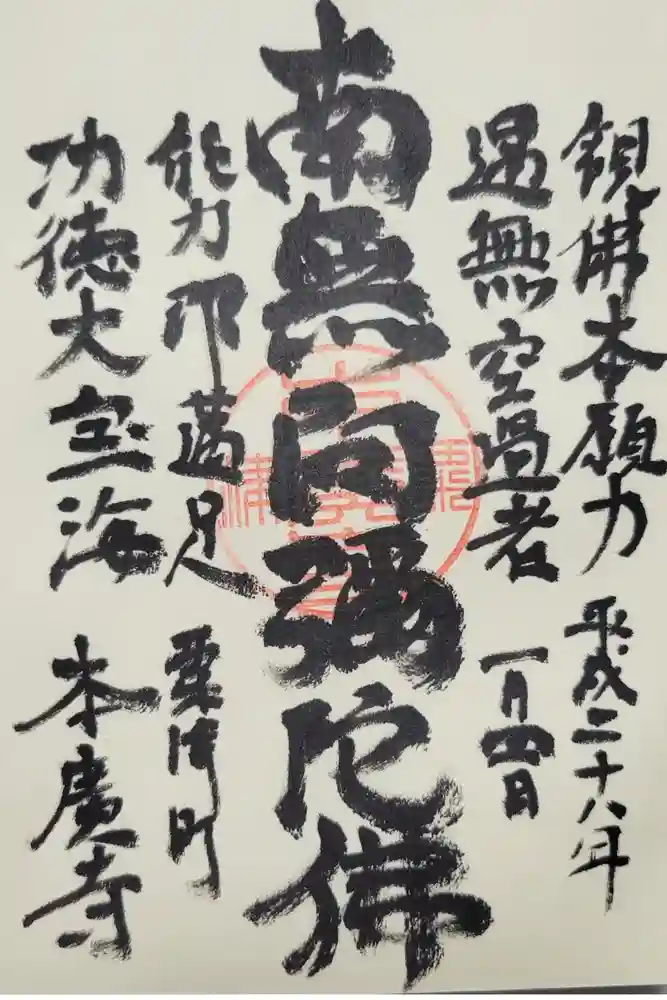 観佛本願力
平成二十八年
遇無空過者
一月四日
南無阿彌陀佛
能満足
粟津町
功徳大宝海
本廣寺